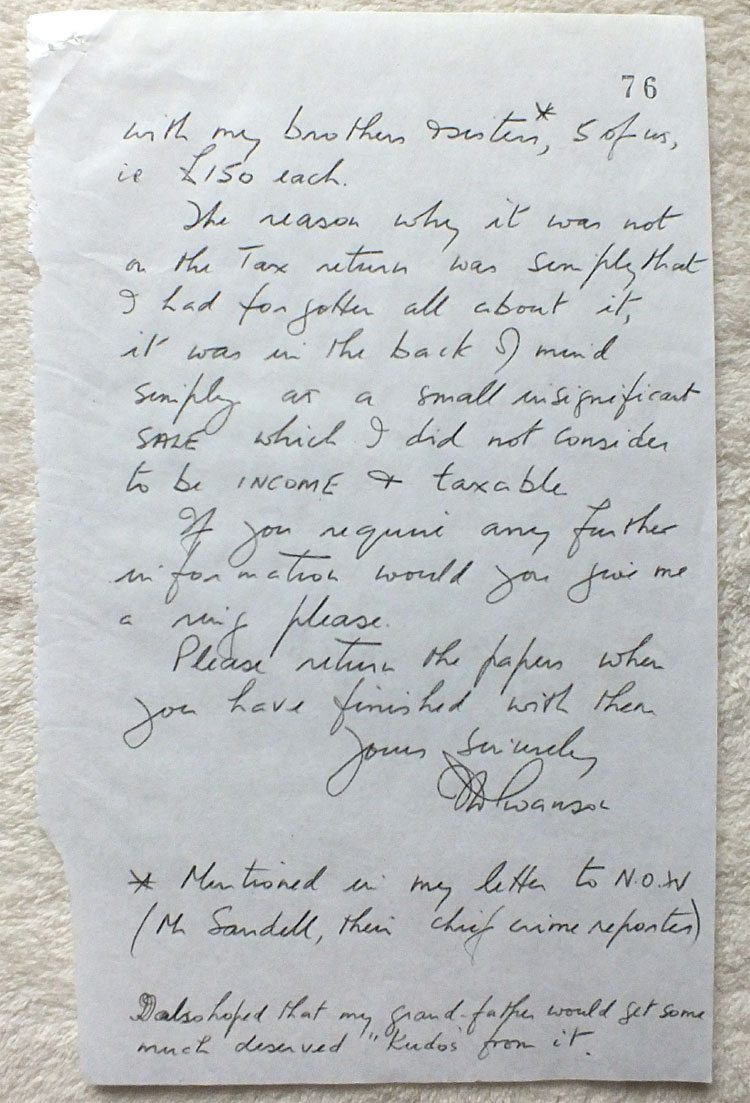 76
with my brothers & sisters*, 5 of us,
ie £150 each.
The reason why it was not
on the Tax return was simply that
I had forgotten all about it,
it was in the back of mind
simply as a small insignificant
SALE which I did not consider
to be INCOME & taxable
If you require any further
information would you give me
a ring please.
Please return the papers when
you have finished with them
Yours Sincerely
Swanson
* Mentioned in my letter to N.O.W
(Mr Sandell, their chief crime reporter)
I also hoped that my grand-father would get some
much deserved "Kudos" from it.